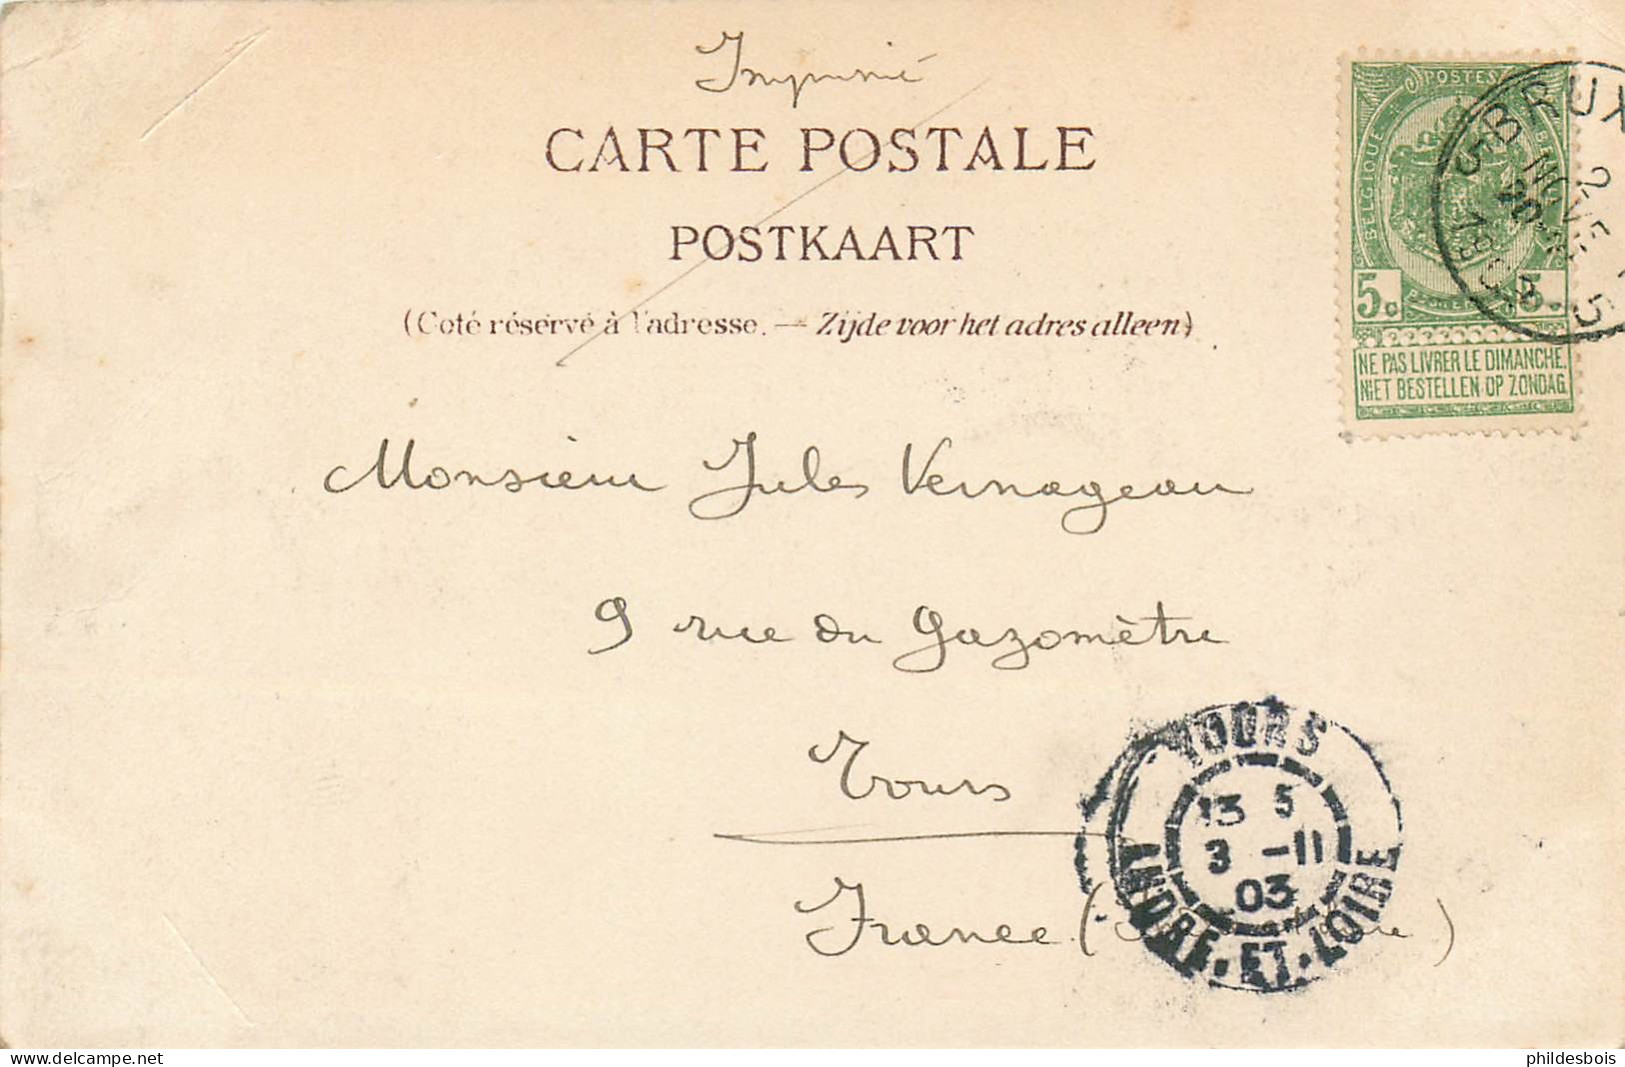 Imprimé
CARTE POSTALE
POSTKAART
(Coté réservé à l'adresse. — Zijde voor het adres alleen)
POSTES
BELGIQUE
5c 5c
NE PAS LIVRER LE DIMANCHE.
NIET BESTELLEN OP ZONDAG.
BRUX
2
NOVE
1903
Monsieur Jules Vernageau
9 rue du Gazomètre
Tours
France (
TOURS
13 5
3 -11
03
INDRE-ET-LOIRE
delcampe.net
phildesbois